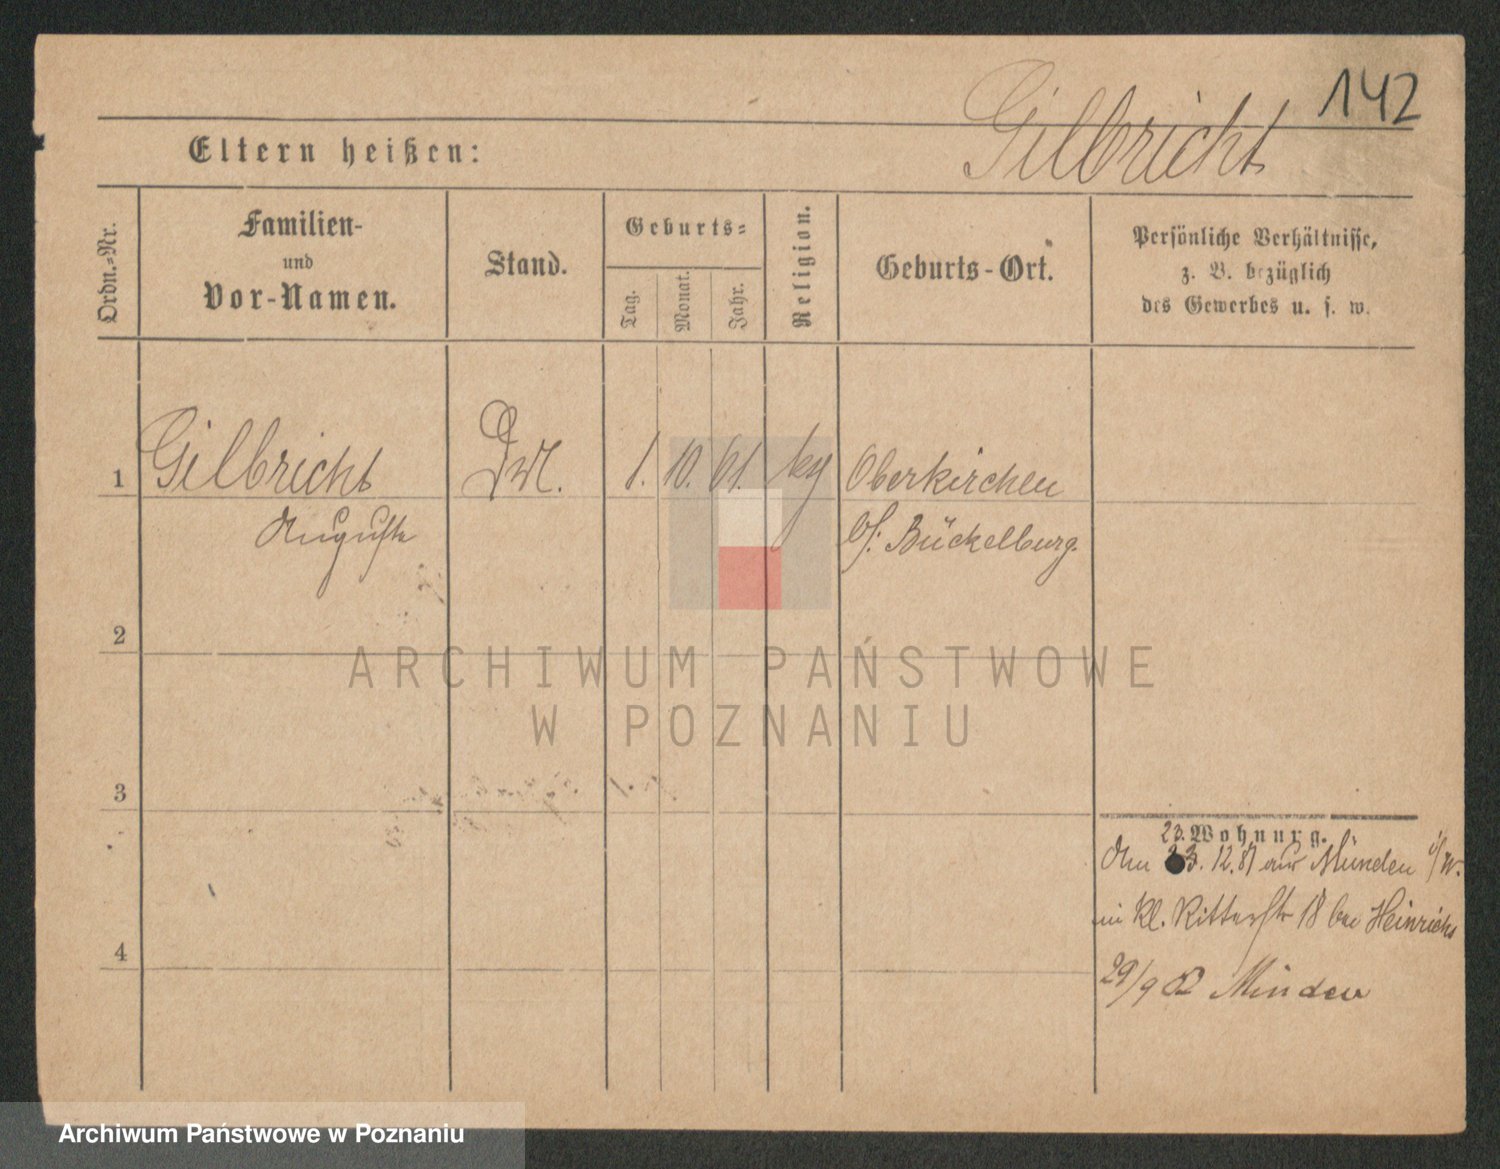 142
Gilbricht
Eltern heißen:
Ordn.-Nr.
Familien-
und
Vor-Namen.
Stand.
Geburts-
Tag.
Monat.
Jahr.
Religion.
Geburts-Ort.
Persönliche Verhältnisse,
z. B. bezüglich
des Gewerbes u. s. w.
1 Gilbricht 1. 10. 61. Oberkirchen
Auguste b/: Bückelburg.
2
ARCHIWUM PAŃSTWOWE
W POZNANIU
3
Wohnung.
23.
23. 12. 81 aus Münden i/W.
in kl. Ritterstr 18 bei Heinrichs
4
29/9 82 Minden
Archiwum Państwowe w Poznaniu